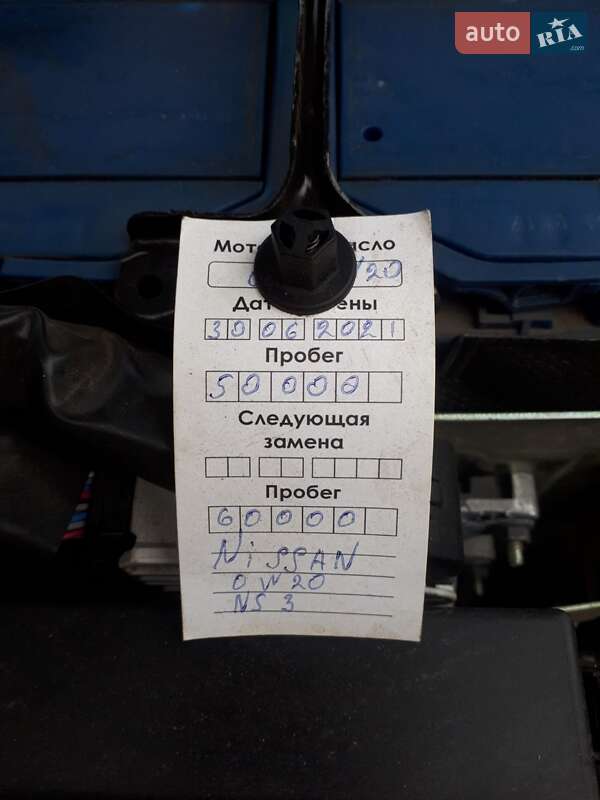 auto RIA .com
Мото асло
/20
Дат ены
30 06 2021
Пробег
50000
Следующая
замена
Пробег
60000
NiSSAN
0W20
NS3